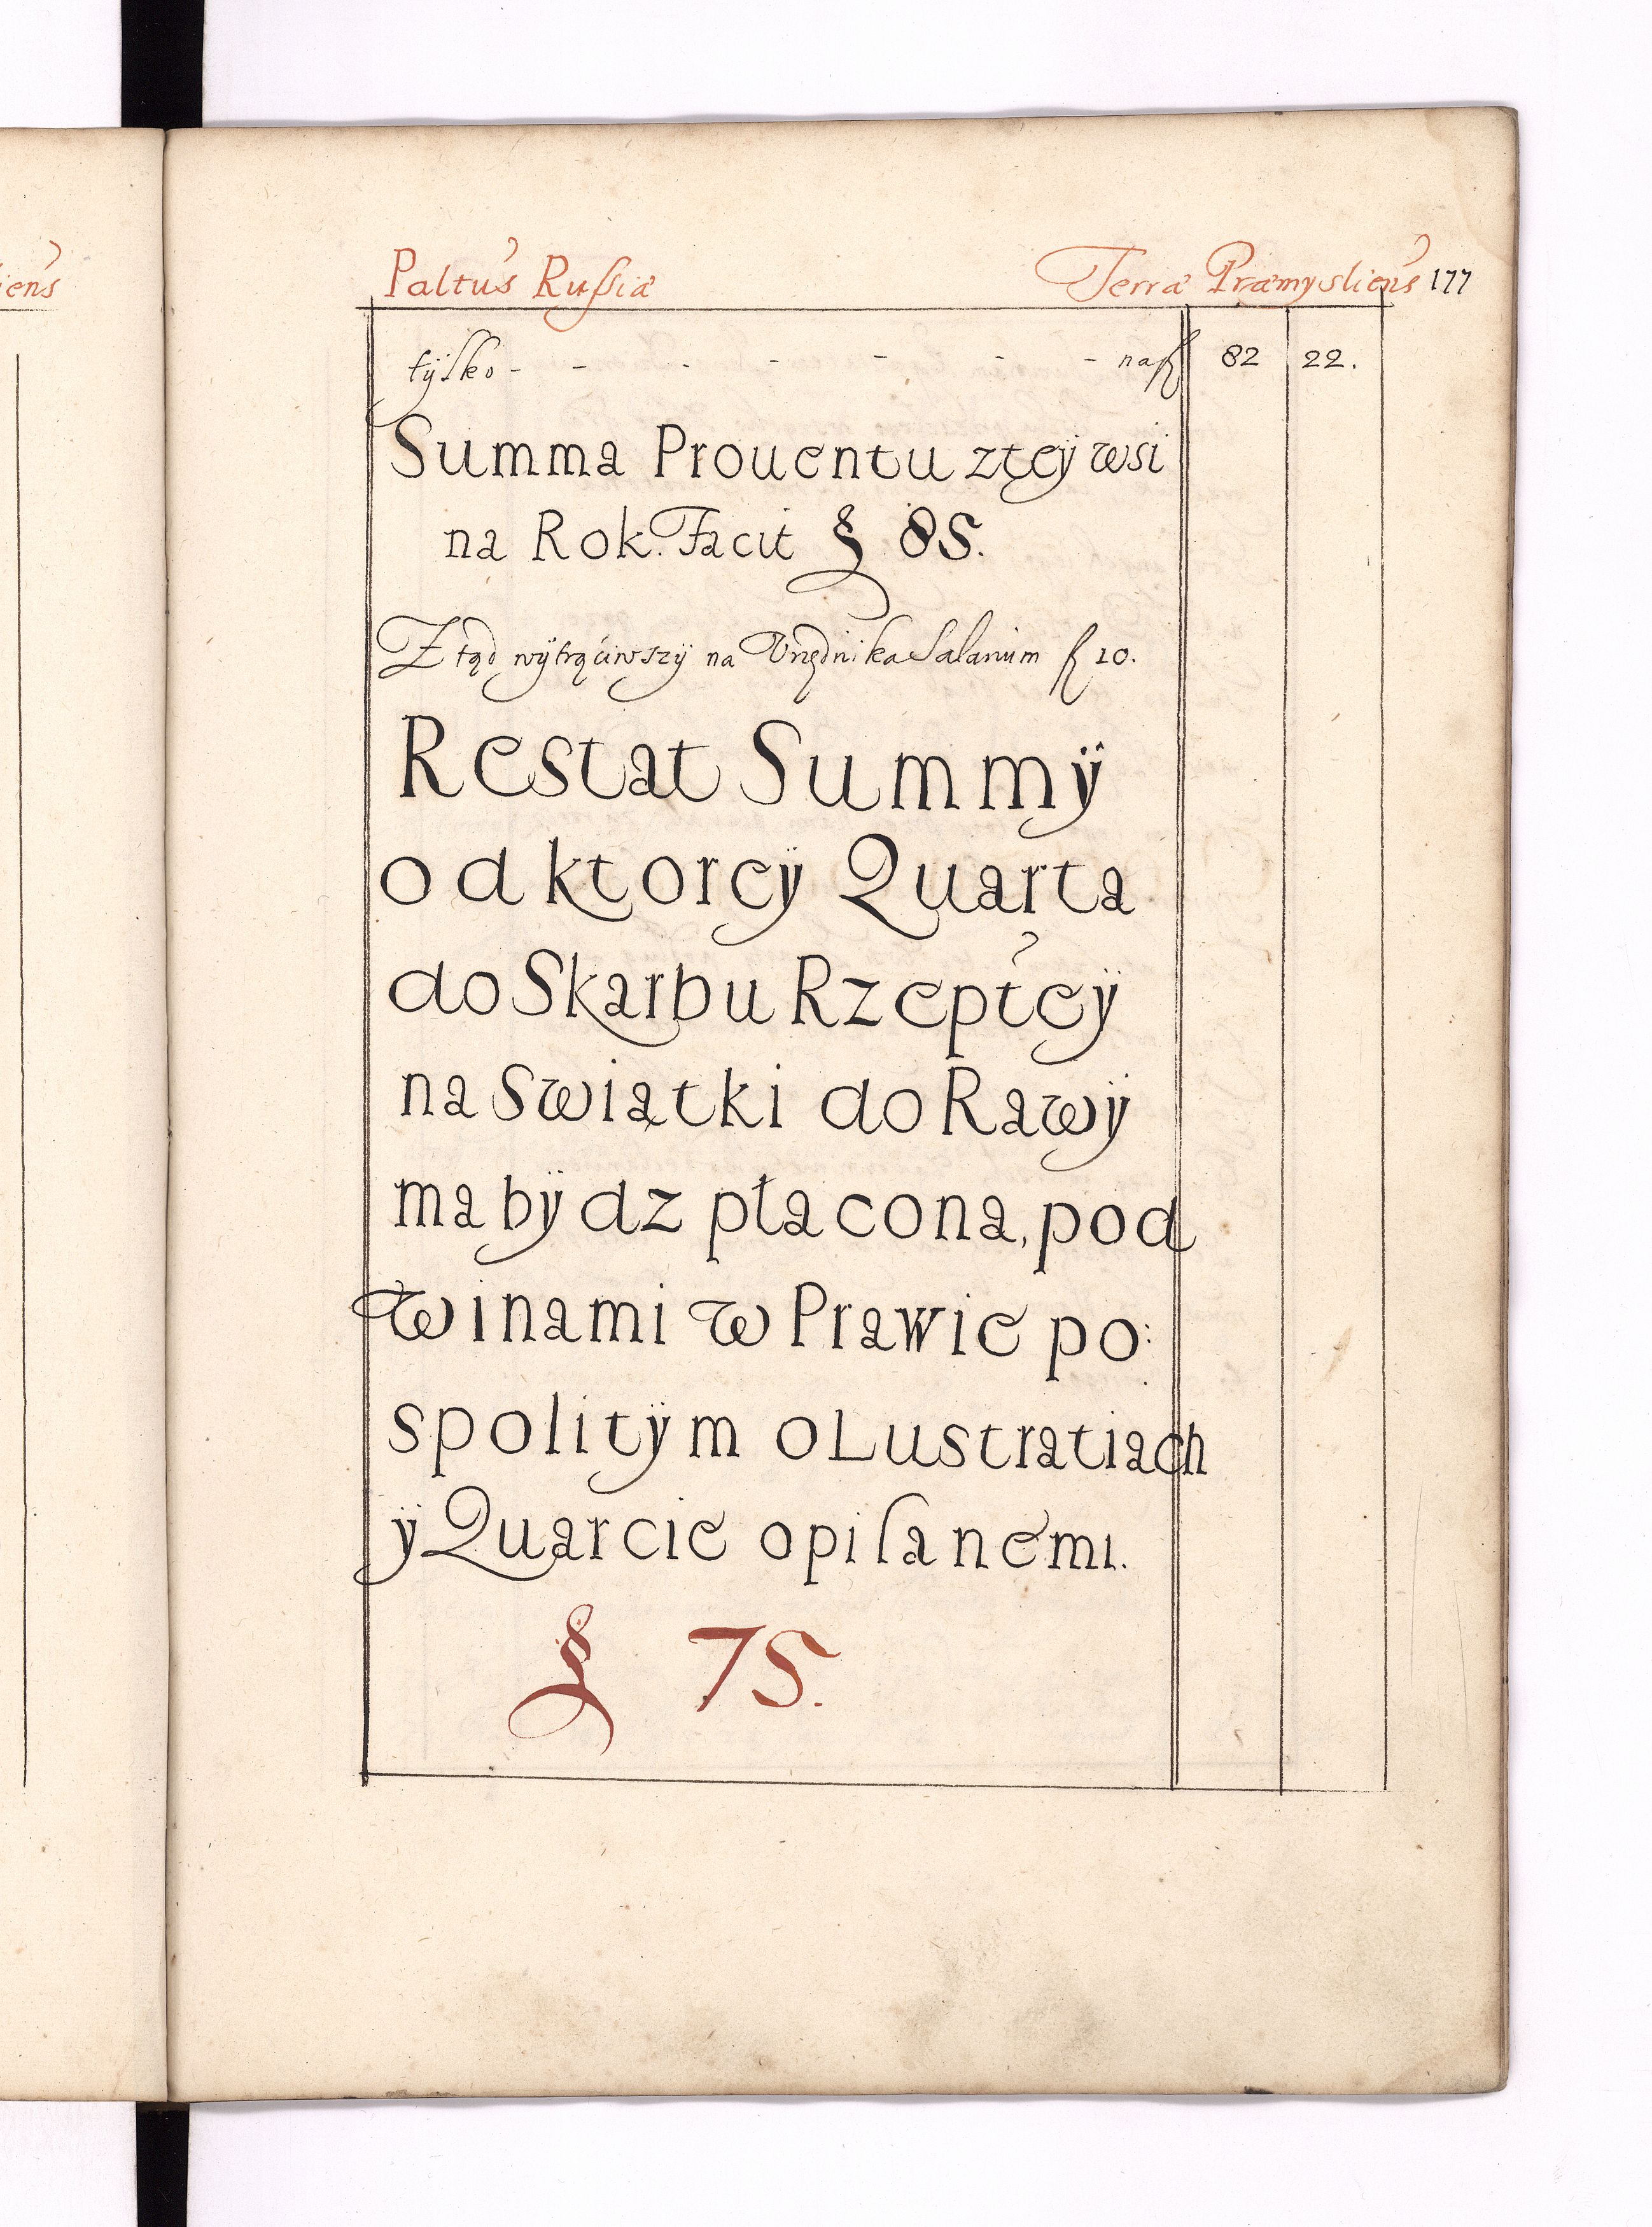 iens
Paltus Russiæ Terræ Præmysliens 177
tÿlko - - - - - - - na fl 82 22.
Summa Prouentu z tęÿ wsi
na Rok. Facit § 85.
Ztąd wÿtrąciwszÿ na Vrzędnika Salarium fl 10.
Restat Summÿ
od ktoreÿ Quarta
do Skarbu Rzepteÿ
na Swiątki do Rawÿ
ma bÿdz płacona, pod
winami w Prawie po:
spolitÿm o Lustratiach
ÿ Quarcie opisanemi.
§ 75.